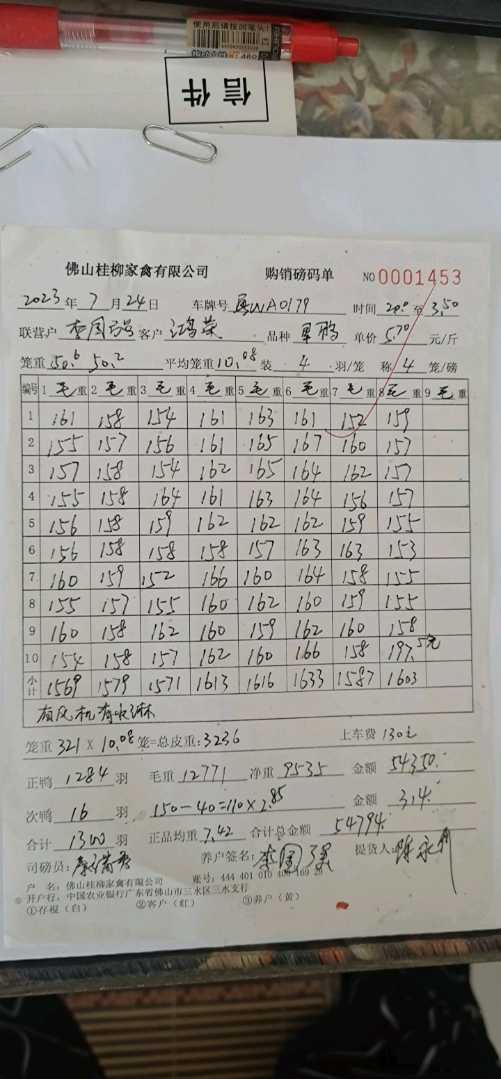 信件
佛山桂柳家禽有限公司 购销磅码单 NO 0001453
2023 年 7 月 24 日 车牌号 A0179 时间 至 3.50
联营户 李国强 客户 鸿荣 品种 单价 5.70 元/斤
笼重 50.6 50.2 平均笼重 10.08 装 4 羽/笼 称 4 笼/磅
编号 1 毛 重 2 毛 重 3 毛 重 4 毛 重 5 毛 重 6 毛 重 7 毛 重 8 毛 重 9 毛 重
1 161 158 154 161 163 161 152 159
2 155 157 156 161 165 167 160 157
3 157 158 154 162 165 164 162 157
4 155 158 164 161 163 164 156 157
5 156 158 159 162 162 162 159 155
6 156 158 158 158 157 163 163 153
7 160 159 152 166 160 164 158 155
8 155 157 155 160 162 160 159 155
9 160 158 162 160 159 162 160 158
10 154 158 157 162 160 166 158 197.
小计 1569 1579 1571 1613 1616 1633 1587 1603
有风机有收淋
笼重 321 × 10.08 笼=总皮重: 3236 上车费 130元
正鸭 1284 羽 毛重 12771 净重 9535 金额 54350.
次鸭 16 羽 150-40=110×2.85 金额 314.
合计 1300 羽 正品均重 7.42 合计总金额 54794.
司磅员: 养户签名: 李国强 提货人:
户 名: 佛山桂柳家禽有限公司 账号: 444 401 010 400 169
开户行: 中国农业银行广东省佛山市三水区三水支行
①存根(白) ②客户(红) ③养户(黄)